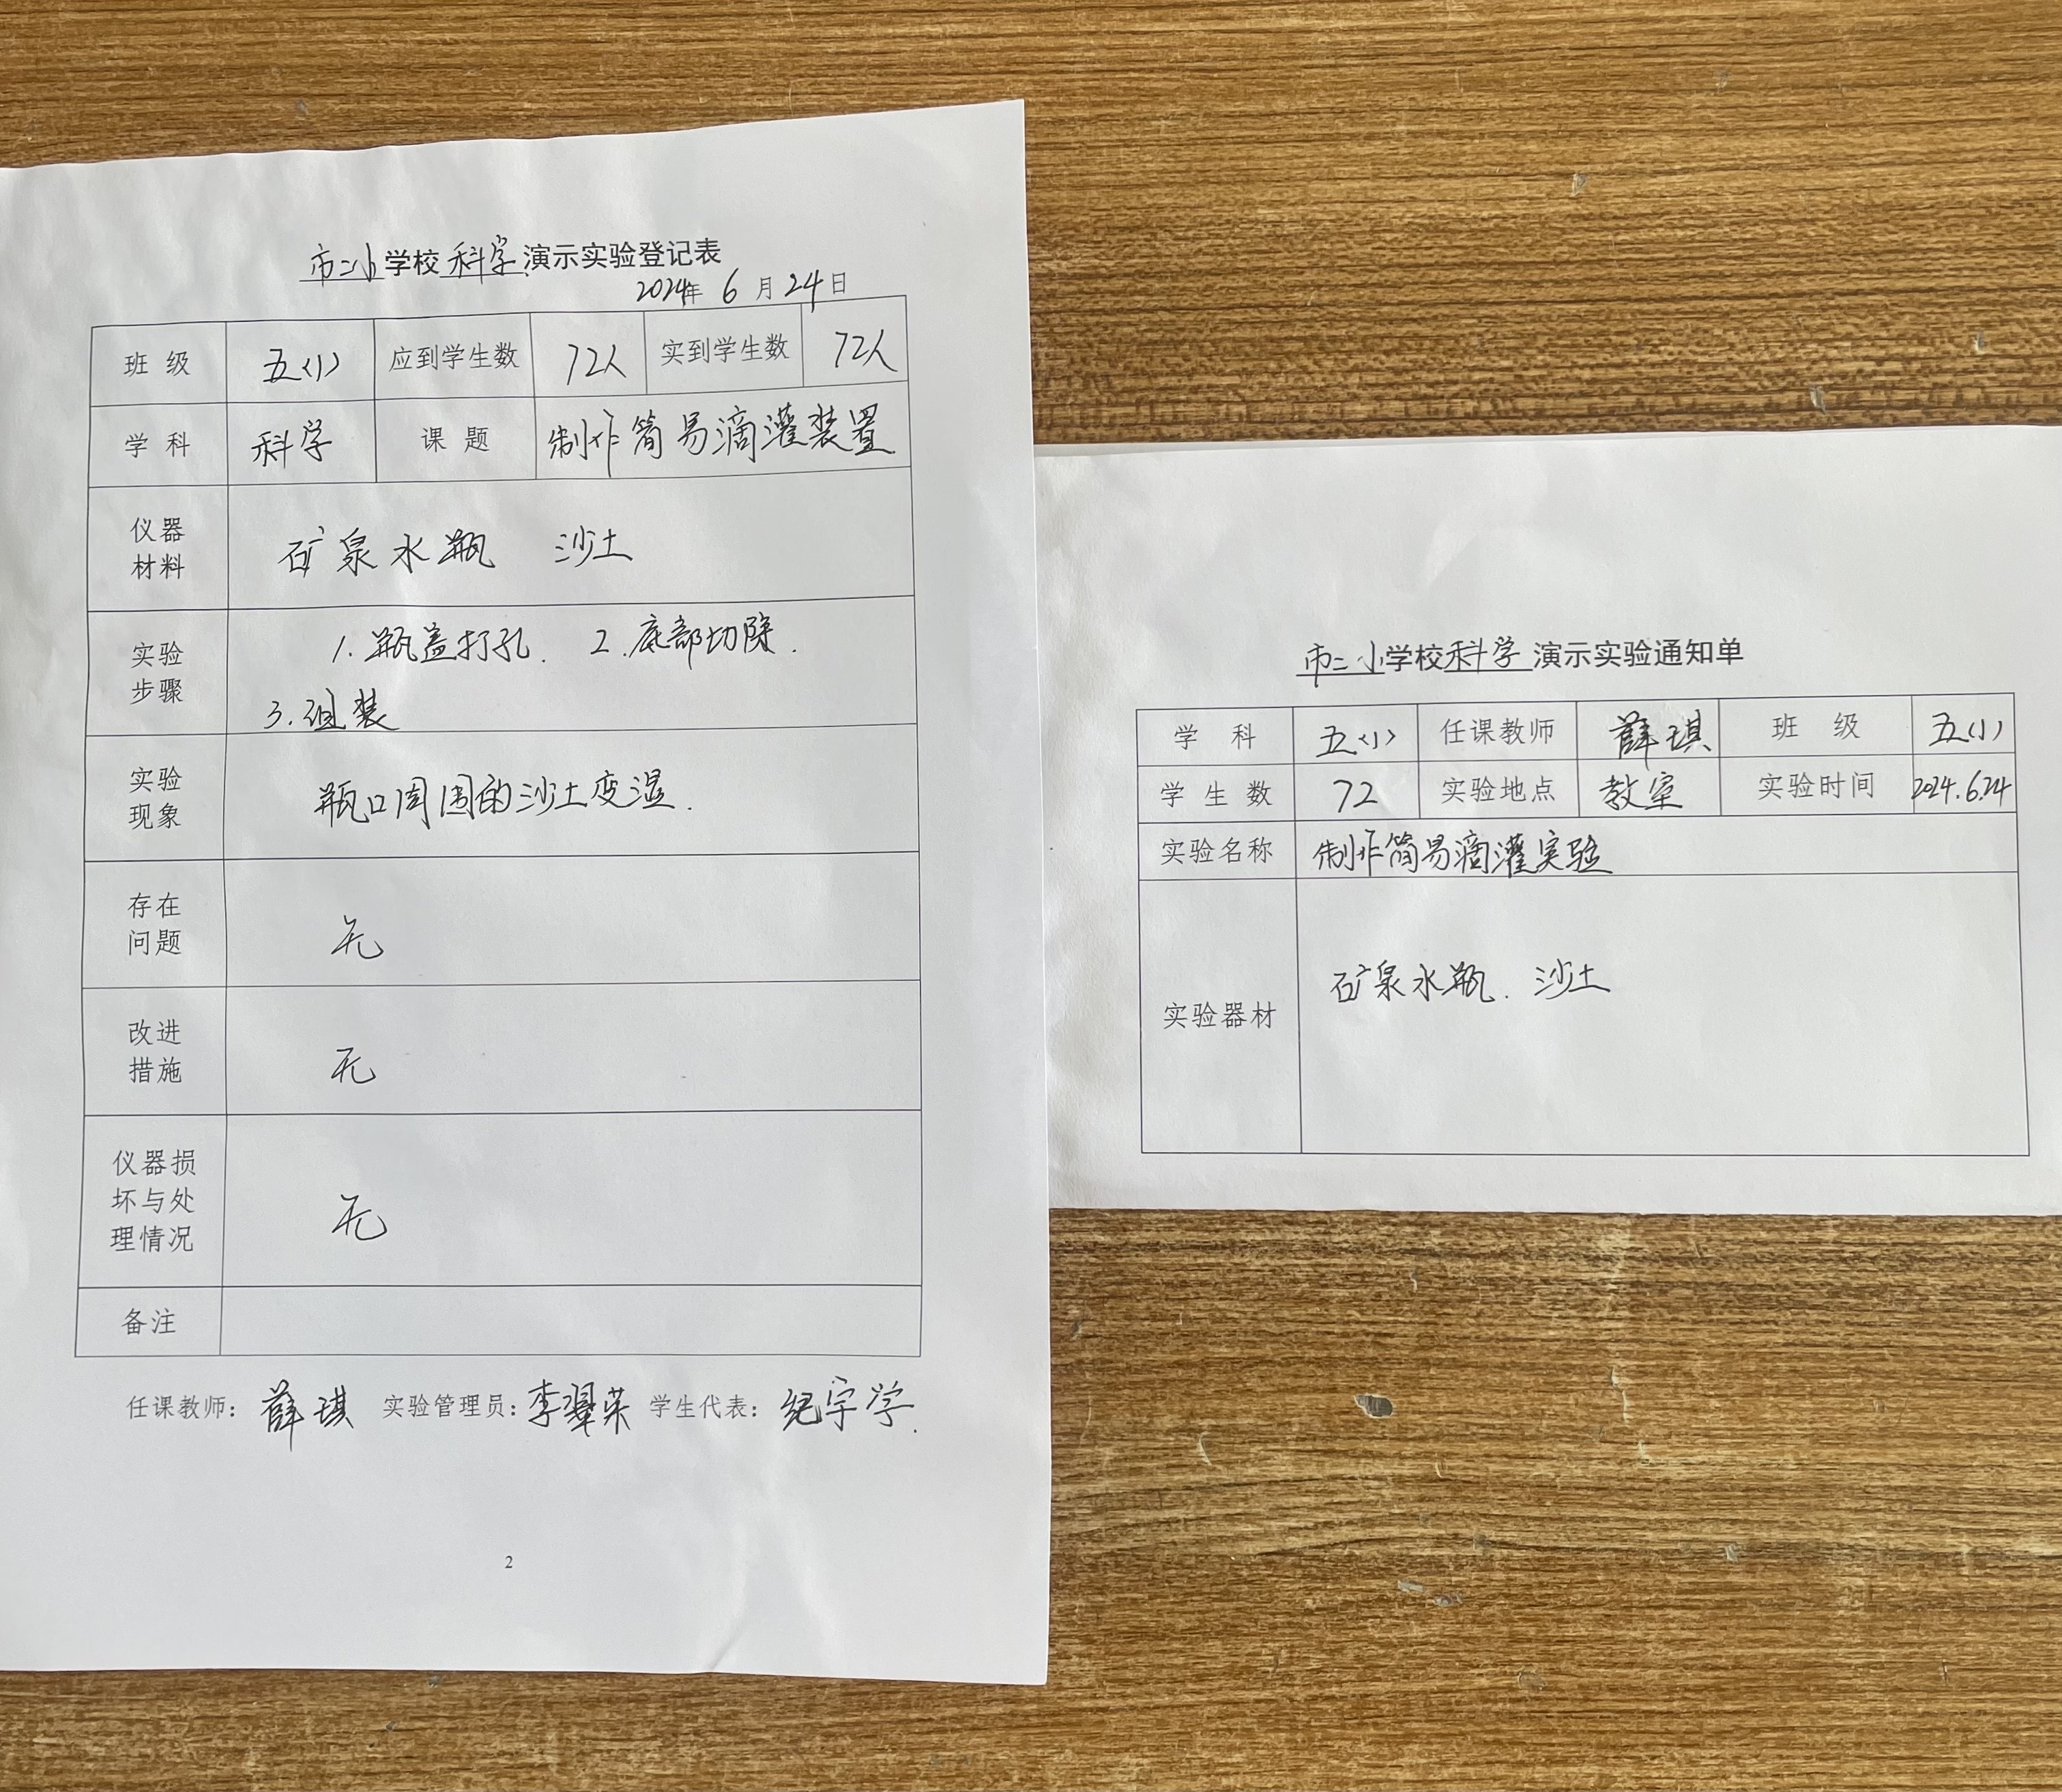 市二小学校科学演示实验登记表
2024年 6 月 24 日
班 级 五(1) 应到学生数 72人 实到学生数 72人
学 科 科学 课 题 制作简易滴灌装置
仪器
材料
矿泉水瓶 沙土
实验
步骤
1. 瓶盖打孔. 2. 底部切除.
3. 组装
实验
现象
瓶口周围的沙土变湿.
存在
问题
无
改进
措施
无
仪器损
坏与处
理情况
无
备注
任课教师: 薛琪 实验管理员: 李翠荣 学生代表: 纪宇学.
2
市二小学校科学演示实验通知单
学 科 五(1) 任课教师 薛琪 班 级 五(1)
学 生 数 72 实验地点 教室 实验时间 2024.6.24
实验名称 制作简易滴灌实验
实验器材 矿泉水瓶. 沙土